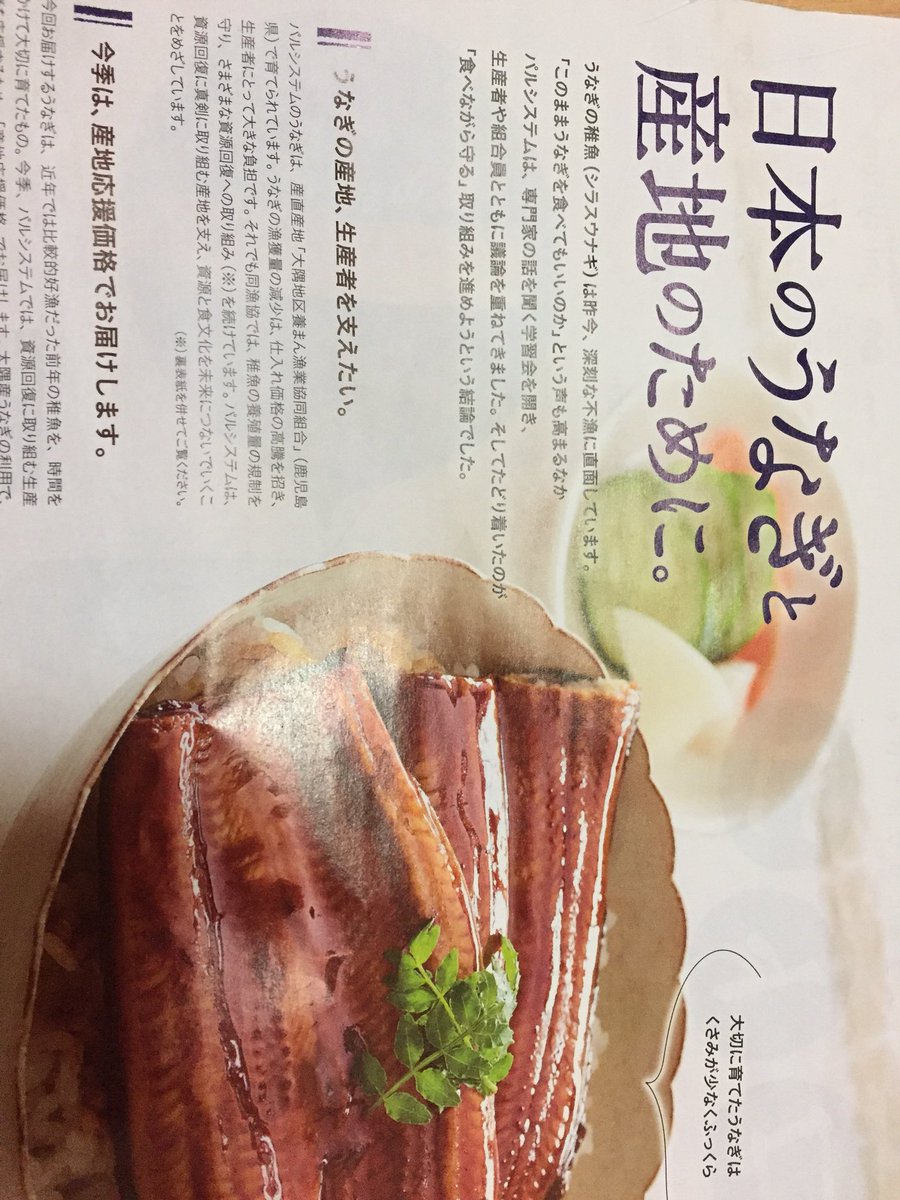 日本のうなぎと
産地のために。
うなぎの稚魚(シラスウナギ)は昨今、深刻な不漁に直面しています。
「このままうなぎを食べてもいいのか」という声も高まるなか
パルシステムは、専門家の話を聞く学習会を開き、
生産者や組合員とともに議論を重ねてきました。そしてたどり着いたのが
「食べながら守る」取り組みを進めようという結論でした。
うなぎの産地、生産者を支えたい。
パルシステムのうなぎは、産直産地「大隅地区養まん漁業協同組合」(鹿児島
県)で育てられています。うなぎの漁獲量の減少は、仕入れ価格の高騰を招き、
生産者にとって大きな負担です。それでも同漁協では、稚魚の養殖量の規制を
守り、さまざまな資源回復への取り組み(※)を続けています。パルシステムは、
資源回復に真剣に取り組む産地を支え、資源と食文化を未来につないでいくこ
とをめざしています。
(※)裏表紙を併せてご覧ください。
今季は、産地応援価格でお届けします。
今回お届けするうなぎは、近年では比較的好漁だった前年の稚魚を、時間を
かけて大切に育てたもの。今季、パルシステムでは、資源回復に取り組む生産
「産地応援価格」でお届けします。大隅産うなぎの利用で、
大切に育てたうなぎは
くさみが少なくふっくら